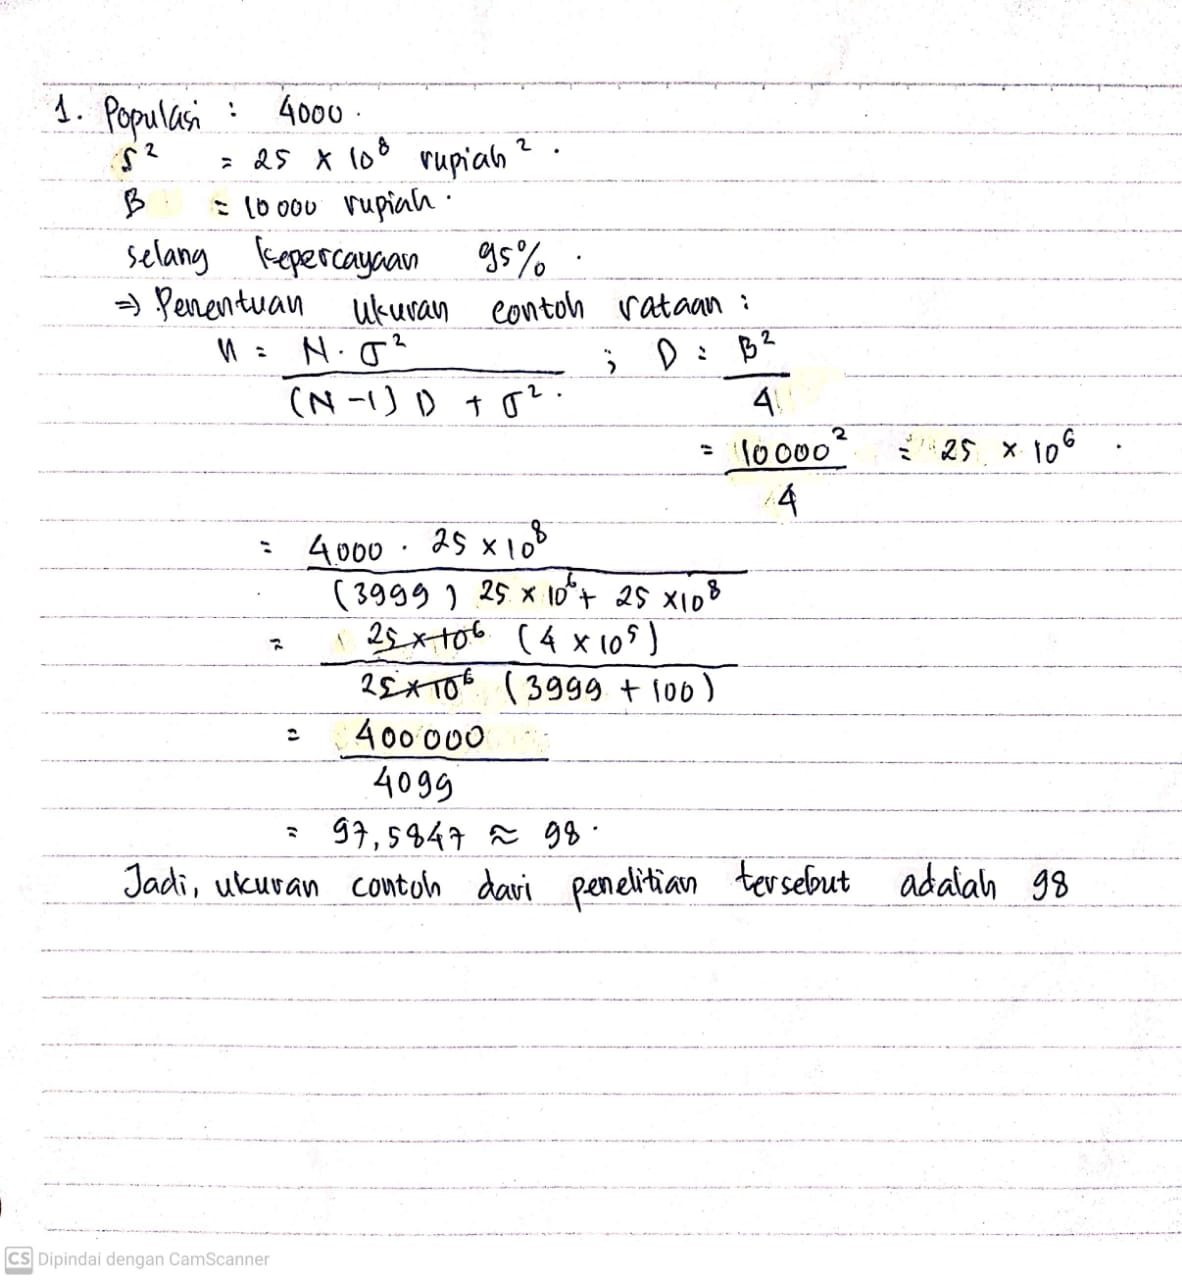 1. Populasi : 4000.
S² = 25 × 10⁸ rupiah².
B = 10 000 rupiah.
selang kepercayaan 95%.
⇒ Penentuan ukuran contoh rataan :
n = N . σ² ; D = B²
(N-1) D + σ². 4
= 10 000² = 25 × 10⁶.
4
= 4000 . 25 × 10⁸
(3999) 25 × 10⁶ + 25 × 10⁸
= 25 × 10⁶ (4 × 10⁵)
25 × 10⁶ (3999 + 100)
= 400 000
4099
= 97,5847 ≈ 98.
Jadi, ukuran contoh dari penelitian tersebut adalah 98
CS Dipindai dengan CamScanner